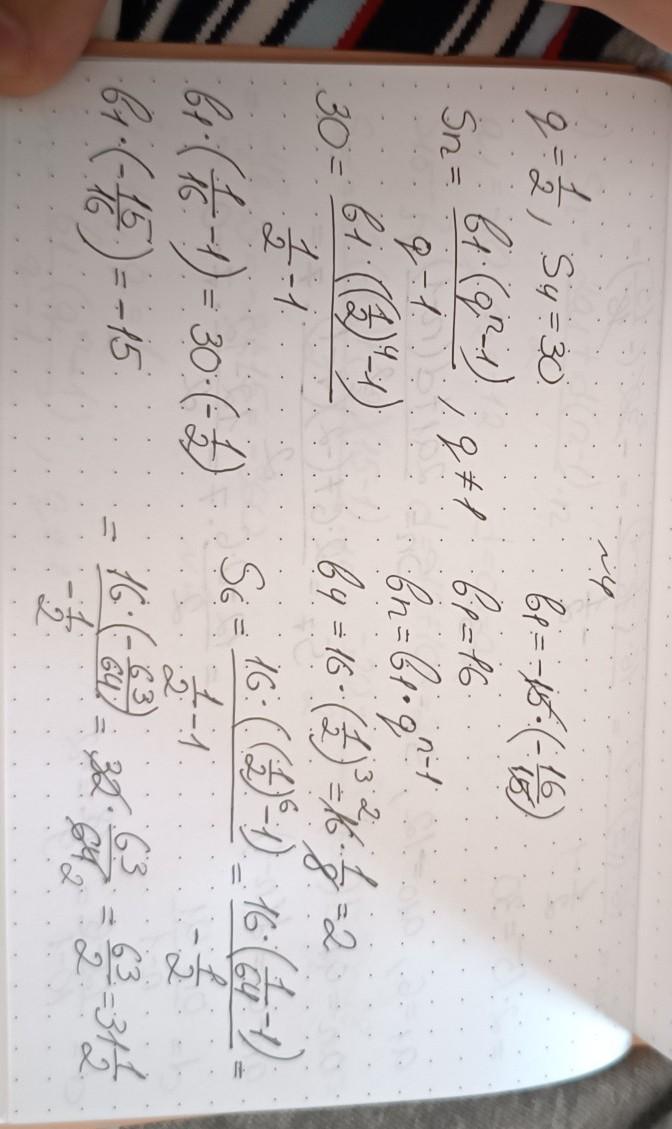 ~4
q = 1/2, S4 = 30
Sn = b1·(q^n-1) / q-1, q ≠ 1
30 = b1·((1/2)^4-1) / 1/2-1
b1·(1/16-1) = 30·(-1/2)
b1·(-15/16) = -15
b1 = -15·(-16/15)
b1 = 16
bn = b1·q^n-1
b4 = 16·(1/2)^3 = 16 2·1/8 = 2
S6 = 16·((1/2)^6-1) / 1/2-1 = 16·(1/64-1) / -1/2 =
= 16·(-63/64) / -1/2 = 32·63/64 2 = 63/2 = 31 1/2